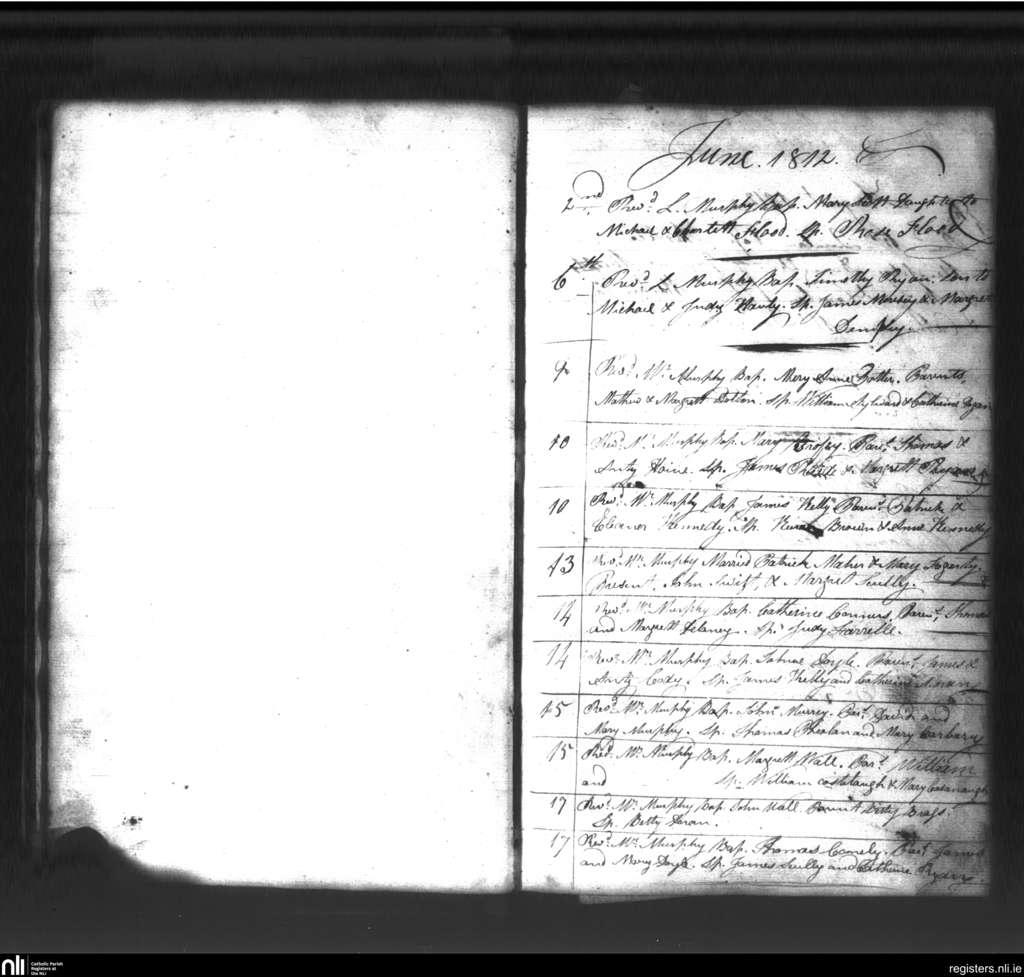 June. 1812.
2nd Revd. L. Murphy Bap. Mary Daughter to
Michael & Flood. Sp. Rose Flood
6th Revd. L. Murphy Bap. Timothy Ryan. Son to
Michael & Judy Sp. James & Margret
Dempsey.
9 Revd. Mr. Murphy Bap. Mery Anne Parents,
Mathew & Margrett Sp. William Aylward & Catherine Ryan
10 Revd. Mr. Murphy Bap. Mary Par. Thomas &
Anty Sp. James & Margrett
10 Revd. Mr. Murphy Bap. James Kelly Paren. Patrick &
Eleanor Kennedy. Sp. Brown & Anne Kennedy
13 Revd. Mr. Murphy Married Patrick Maher & Mary Fogarty.
Present, John Swift, & Margret Scully.
14 Revd. Mr. Murphy Bap. Catherine Connors, Paren. Thomas
and Margrett Delaney. Sp. Judy Farrelle.
14 Revd. Mr. Murphy Bap. Doyle. Paren. James &
Anty Cody. Sp. James Kelly and Catherine
15 Revd. Mr. Murphy Bap. John Murrey. Par. David and
Mary Murphy. Sp. Thomas Phealan and Mary Carbary
15 Revd. Mr. Murphy Bap. Margrett Wall. Par. William
and Sp. William & Mary Cavanaugh
17 Revd. Mr. Murphy Bap. John Wall. Parent Betty
Sp. Betty Doran.
17 Revd. Mr. Murphy Bap. Thomas Par. James
and Mary Doyle. Sp. James Scully and Catherine Ryan
nli Catholic Parish
Registers at
the NLI
registers.nli.ie